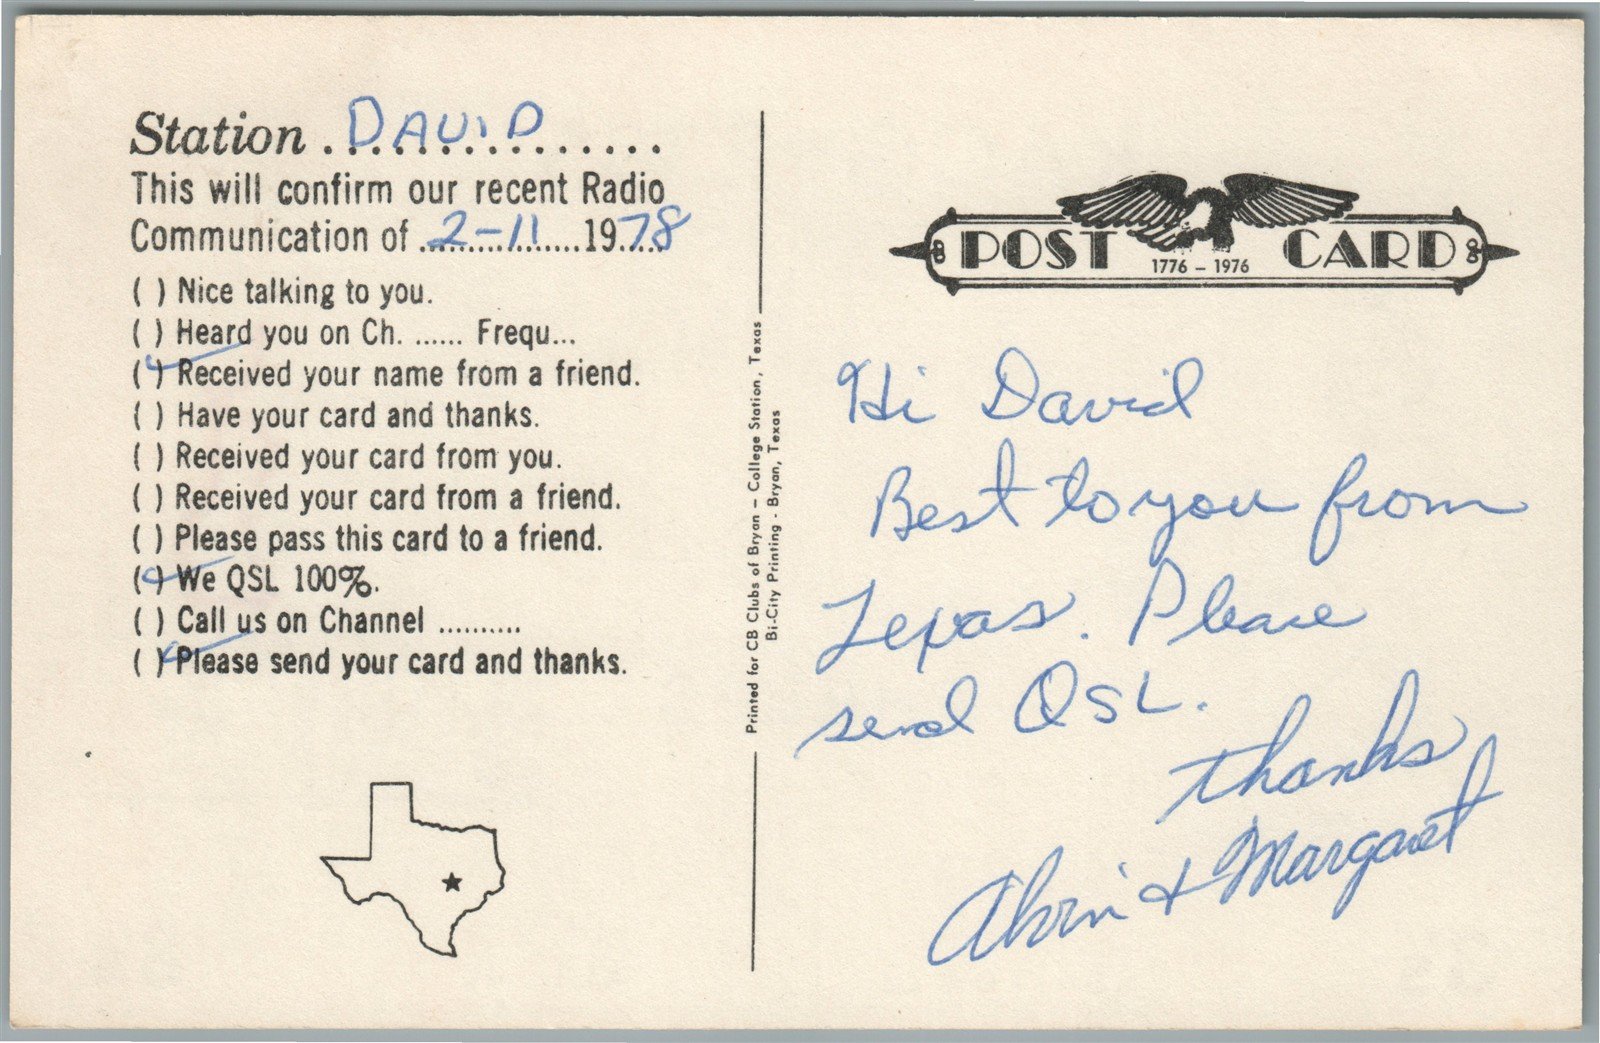 Station . DAVID . . . . . .
This will confirm our recent Radio
Communication of 2-11 1978
( ) Nice talking to you.
( ) Heard you on Ch. ...... Frequ...
(✓) Received your name from a friend.
( ) Have your card and thanks.
( ) Received your card from you.
( ) Received your card from a friend.
( ) Please pass this card to a friend.
(✓) We QSL 100%.
( ) Call us on Channel ..........
(✓) Please send your card and thanks.
Printed for CB Clubs of Bryan – College Station, Texas
Bi-City Printing - Bryan, Texas
POST CARD
1776 – 1976
Hi David
Best to you from
Texas. Please
send QSL.
thanks
Alvin & Margaret